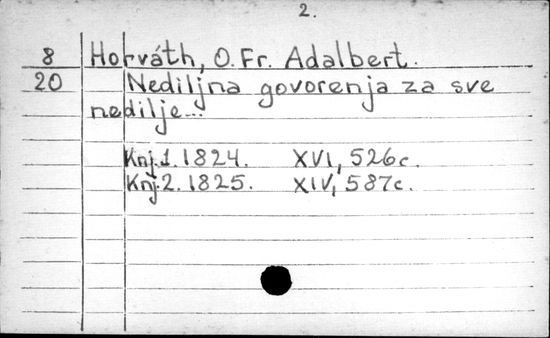 2.
8 Horváth, O. Fr. Adalbert.
20 Nediljna govorenja za sve
nedilje...
Knj. 1. 1824. XVI, 526 c.
Knj. 2. 1825. XIV, 587 c.